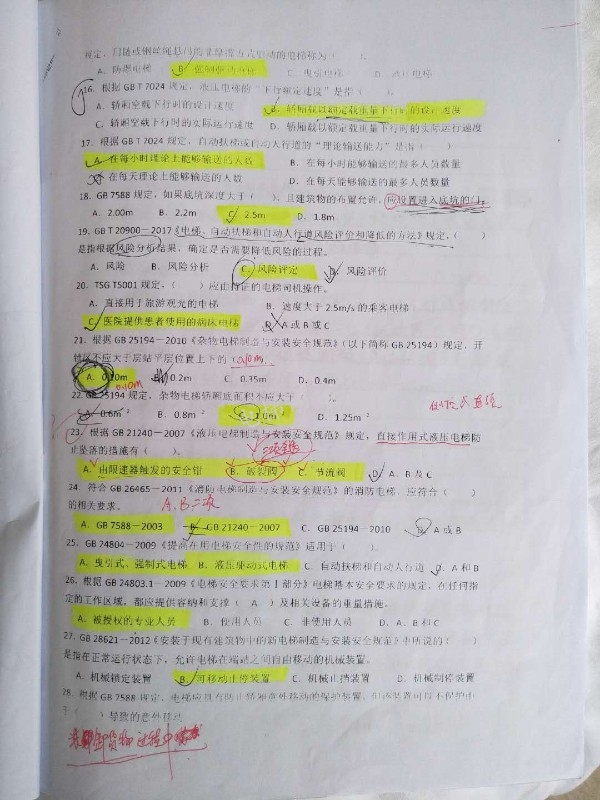 规定，用链或钢丝绳悬吊的非摩擦方式驱动的电梯称为（　）。
A．防爆电梯　B．强制驱动电梯　C．曳引电梯　D．液压电梯
16．根据 GB T 7024 规定，液压电梯的“下行额定速度”是指（　）。
A．轿厢空载下行时的设计速度　B．轿厢载以额定载重量下行时的设计速度
C．轿厢空载下行时的实际运行速度　D．轿厢载以额定载重量下行时的实际运行速度
17．根据 GB T 7024 规定，自动扶梯或自动人行道的“理论输送能力”是指（　）
A．在每小时理论上能够输送的人数　B．在每小时能够输送的最多人员数量
C．在每天理论上能够输送的人数　D．在每天能够输送的最多人员数量
18．GB 7588 规定，如果底坑深度大于（　），且建筑物的布置允许，应设置进入底坑的门。
A．2.00m　B．2.2m　C．2.5m　D．1.8m
19．GB T 20900－2017《电梯、自动扶梯和自动人行道风险评价和降低的方法》规定，（　）
是指根据风险分析结果，确定是否需要降低风险的过程。
A．风险　B．风险分析　C．风险评定　D．风险评价
20．TSG T5001 规定，（　）应由持证的电梯司机操作。
A．直接用于旅游观光的电梯　B．速度大于 2.5m/s 的乘客电梯
C．医院提供患者使用的病床电梯　D．A 或 B 或 C
21．根据 GB 25194－2010《杂物电梯制造与安装安全规范》（以下简称 GB 25194）规定，开
锁区不应大于层站平层位置上下的（0.10m）
A．0.10m　B．0.2m　C．0.35m　D．0.4m
0.10m
22．GB 25194 规定，杂物电梯轿厢底面积不应大于（　）。
A．0.6m²　B．0.8m²　C．1.0m²　D．1.25m²
23．根据 GB 21240－2007《液压电梯制造与安装安全规范》规定，直接作用式液压电梯防
止坠落的措施有（　）。
A．由限速器触发的安全钳　B．破裂阀　C．节流阀　D．A、B 及 C
24．符合 GB 26465－2011《消防电梯制造与安装安全规范》的消防电梯，应符合（　）
的相关要求。
A．GB 7588－2003　B．GB 21240－2007　C．GB 25194－2010　D．A 或 B
25．GB 24804－2009《提高在用电梯安全性的规范》适用于（　）。
A．曳引式、强制式电梯　B．液压驱动式电梯　C．自动扶梯和自动人行道　D．A 和 B
26．根据 GB 24803.1－2009《电梯安全要求第 1 部分》电梯基本安全要求的规定，在任何指
定的工作区域，都应提供容纳和支撑（　A　）及相关设备的重量措施。
A．被授权的专业人员　B．使用人员　C．非使用人员　D．A、B 和 C
27．GB 28621－2012《安装于现有建筑物中的新电梯制造与安装安全规范》中所说的：（　）
是指在正常运行状态下，允许电梯在端站之间自由移动的机械装置。
A．机械锁定装置　B．可移动止停装置　C．机械止挡装置　D．机械制停装置
28．根据 GB 7588 规定，电梯应具有防止轿厢意外移动的保护装置，但该装置可以不保护由
于（　）导致的意外移动